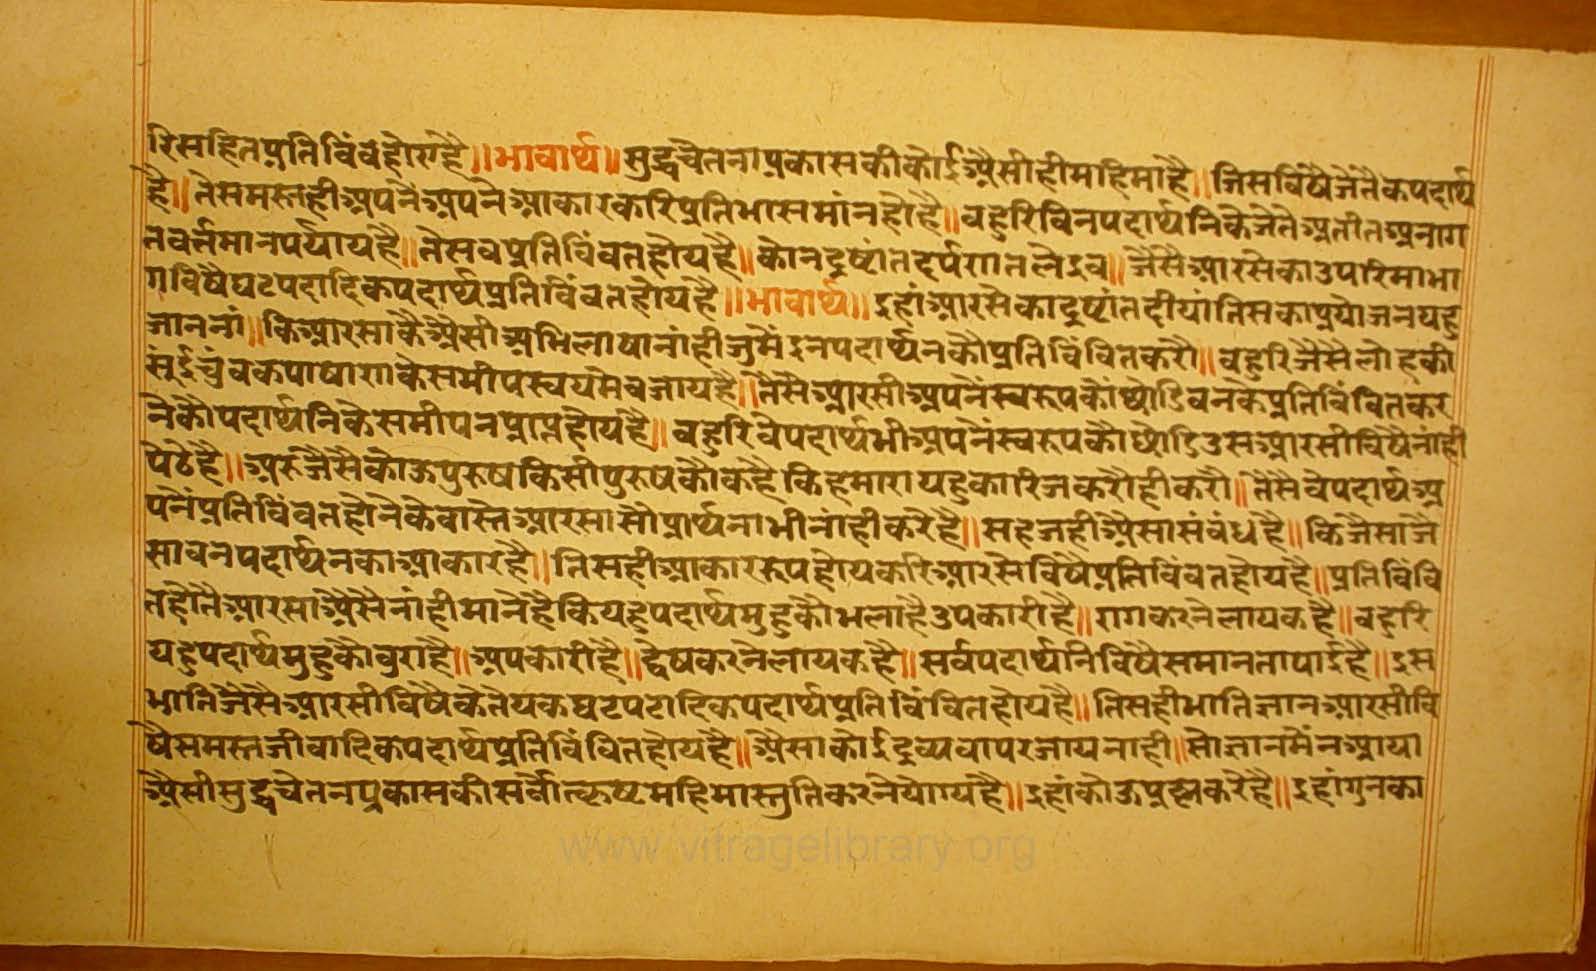 रिसहितप्रतिविंवहोएहै॥भावार्थ॥सुद्धचेतनाप्रकासकीकोईअैसीहीमहिमाहै॥जिसविषैजेतेकपदार्थ
है॥तेसमस्तहीअपनेअपनेआकारकरिप्रतिभासमांनहोहै॥वहुरिविनपदार्थनिकेजेतेअतीतअनाग
तवर्तमानपर्यायहै॥तेसवप्रतिविंवतहोयहै॥कोनदृष्टांतदर्पणतलेइव॥जैसैआरसेकाउपरिमाभा
गविषैघटपटादिकपदार्थप्रतिविंवतहोयहै॥भावार्थ॥इहांआरसेकादृष्टांतदीयांतिसकाप्रयोजनयहु
जाननां॥किआरसाकैअैसीअभिलाषानांहीजुमैंइनपदार्थनकौप्रतिविंवितकरौ॥वहुरिजैसैलोहकी
सुईचुंवकपाषाणकेसमीपस्वयमेवजायहै॥तैसैआरसीअपनेंस्वरूपकोंछोडिवनकेप्रतिविंवितकर
नेकौपदार्थनिकेसमीपनप्राप्तहोयहै॥वहुरिवेपदार्थभीअपनेंस्वरूपकौछोडिउसआरसीविषैनांही
पेठेहै॥अरुजैसैकोऊपुरुषकिसीपुरुषकौकहैकिहमारायहुकारिजकरौहीकरौ॥तैसैवेपदार्थअ
पनेंप्रतिविंवतहोनेकेवास्तेआरसासौंप्रार्थनाभीनांहीकरेहै॥सहजहीअैसासंवंधहै॥किजैसाजै
सावनपदार्थनकाआकारहै॥तिसहीआकाररूपहोयकरिआरसेविषैप्रतिविंवतहोयहै॥प्रतिविंवि
तहोतैआरसाअैसैनांहीमानेहैकियहुपदार्थमुहुकौभलाहैउपकारीहै॥रागकरनेलायकहै॥वहुरि
यहुपदार्थमुहुकौवुराहै॥अपकारीहै॥द्वेषकरनेलायकहै॥सर्वपदार्थनिविषैसमानतापाईहै॥इस
भातिजैसैआरसीविषैकेतेयकघटपटादिकपदार्थप्रतिविंवितहोयहै॥तिसहीभातिज्ञानआरसीवि
षैसमस्तजीवादिकपदार्थप्रतिविंवितहोयहै॥अैसाकोईद्रव्यवापरजायनाही॥सोज्ञानमैंनआया
अैसीसुद्धचेतनप्रकासकीसर्वोत्कृष्टमहिमास्तुतिकरनेयोग्यहै॥इहांकोऊप्रस्नकरेहै॥इहांगुनका
www.vitragelibrary.org